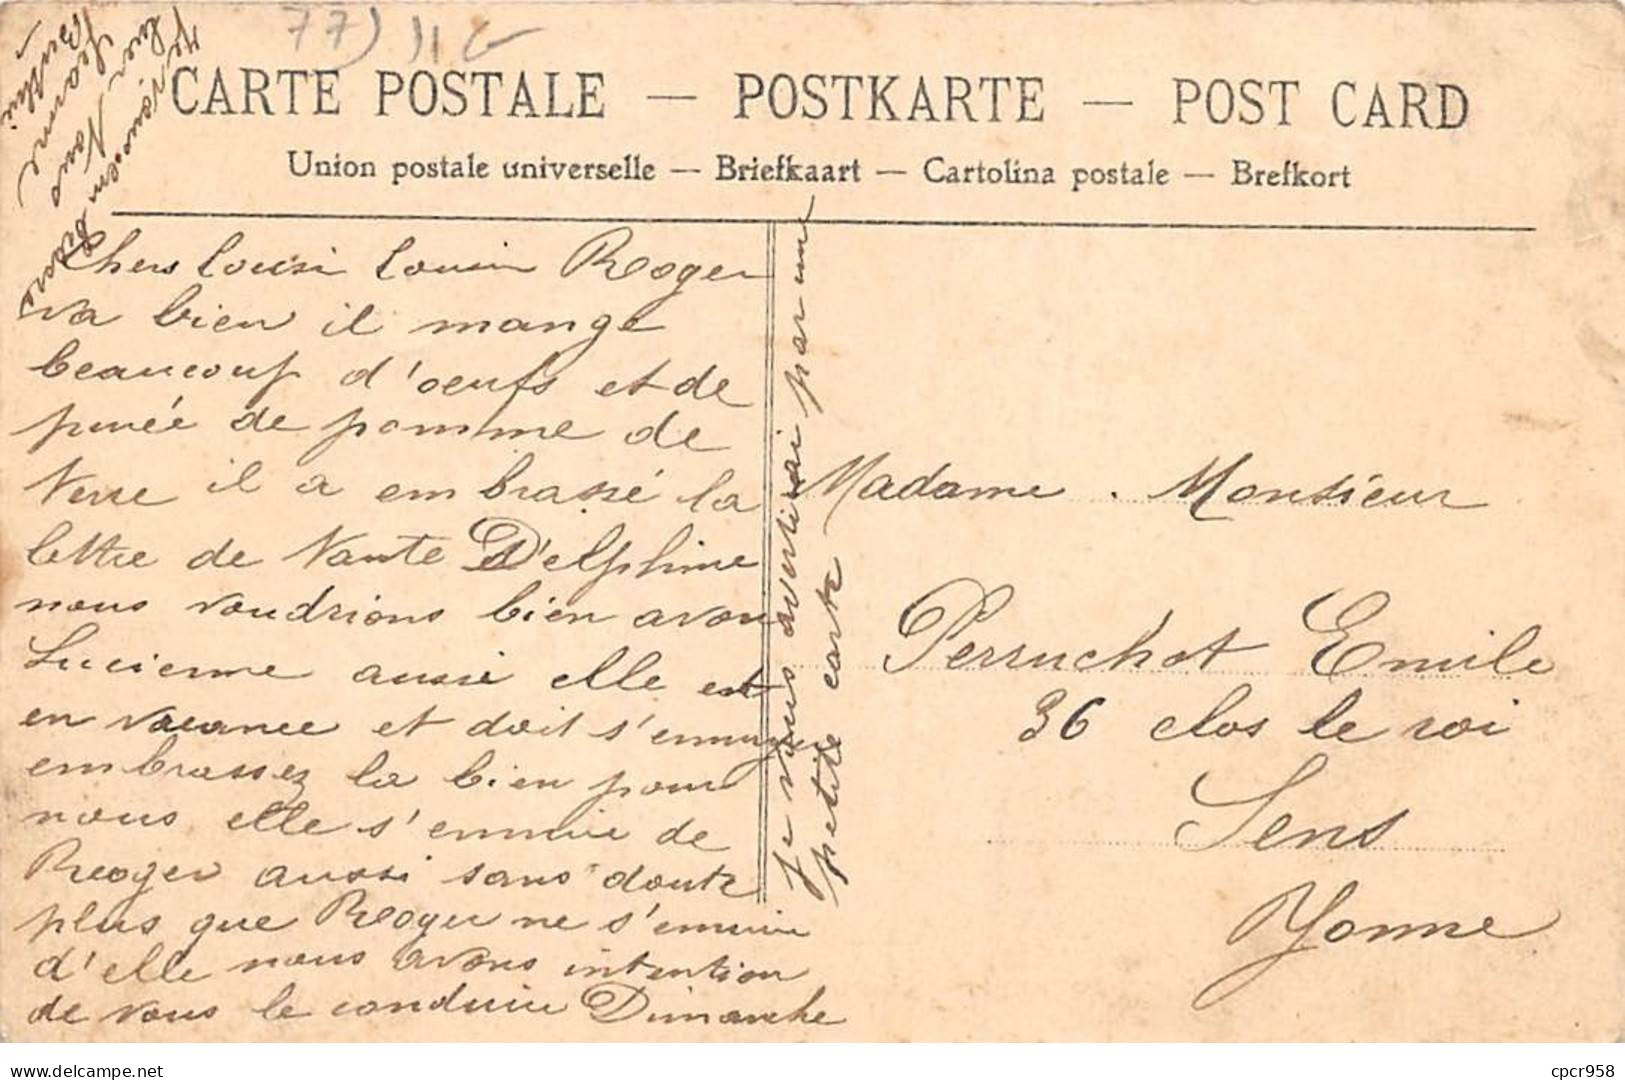 77) 11 G
CARTE POSTALE — POSTKARTE — POST CARD
Union postale universelle — Briefkaart — Cartolina postale — Brefkort
Chers Cousi Cousin Roger
va bien il mange
beaucoup d'oeufs et de
purée de pomme de
terre il a embrassé la
lettre de tante Delphine
nous voudrions bien avoir
Lucienne aussi elle est
en vacance et doit s'ennuyer
embrassez la bien pour
nous elle s'ennuie de
Roger aussi sans doute
plus que Roger ne s'ennuie
d'elle nous avons intention
de vous le conduire Dimanche
je vous avertirai par une
petite carte
Jeanne
Madame . Monsieur
Perruchot Emile
36 clos le roi
Sens
Yonne
cpcr958